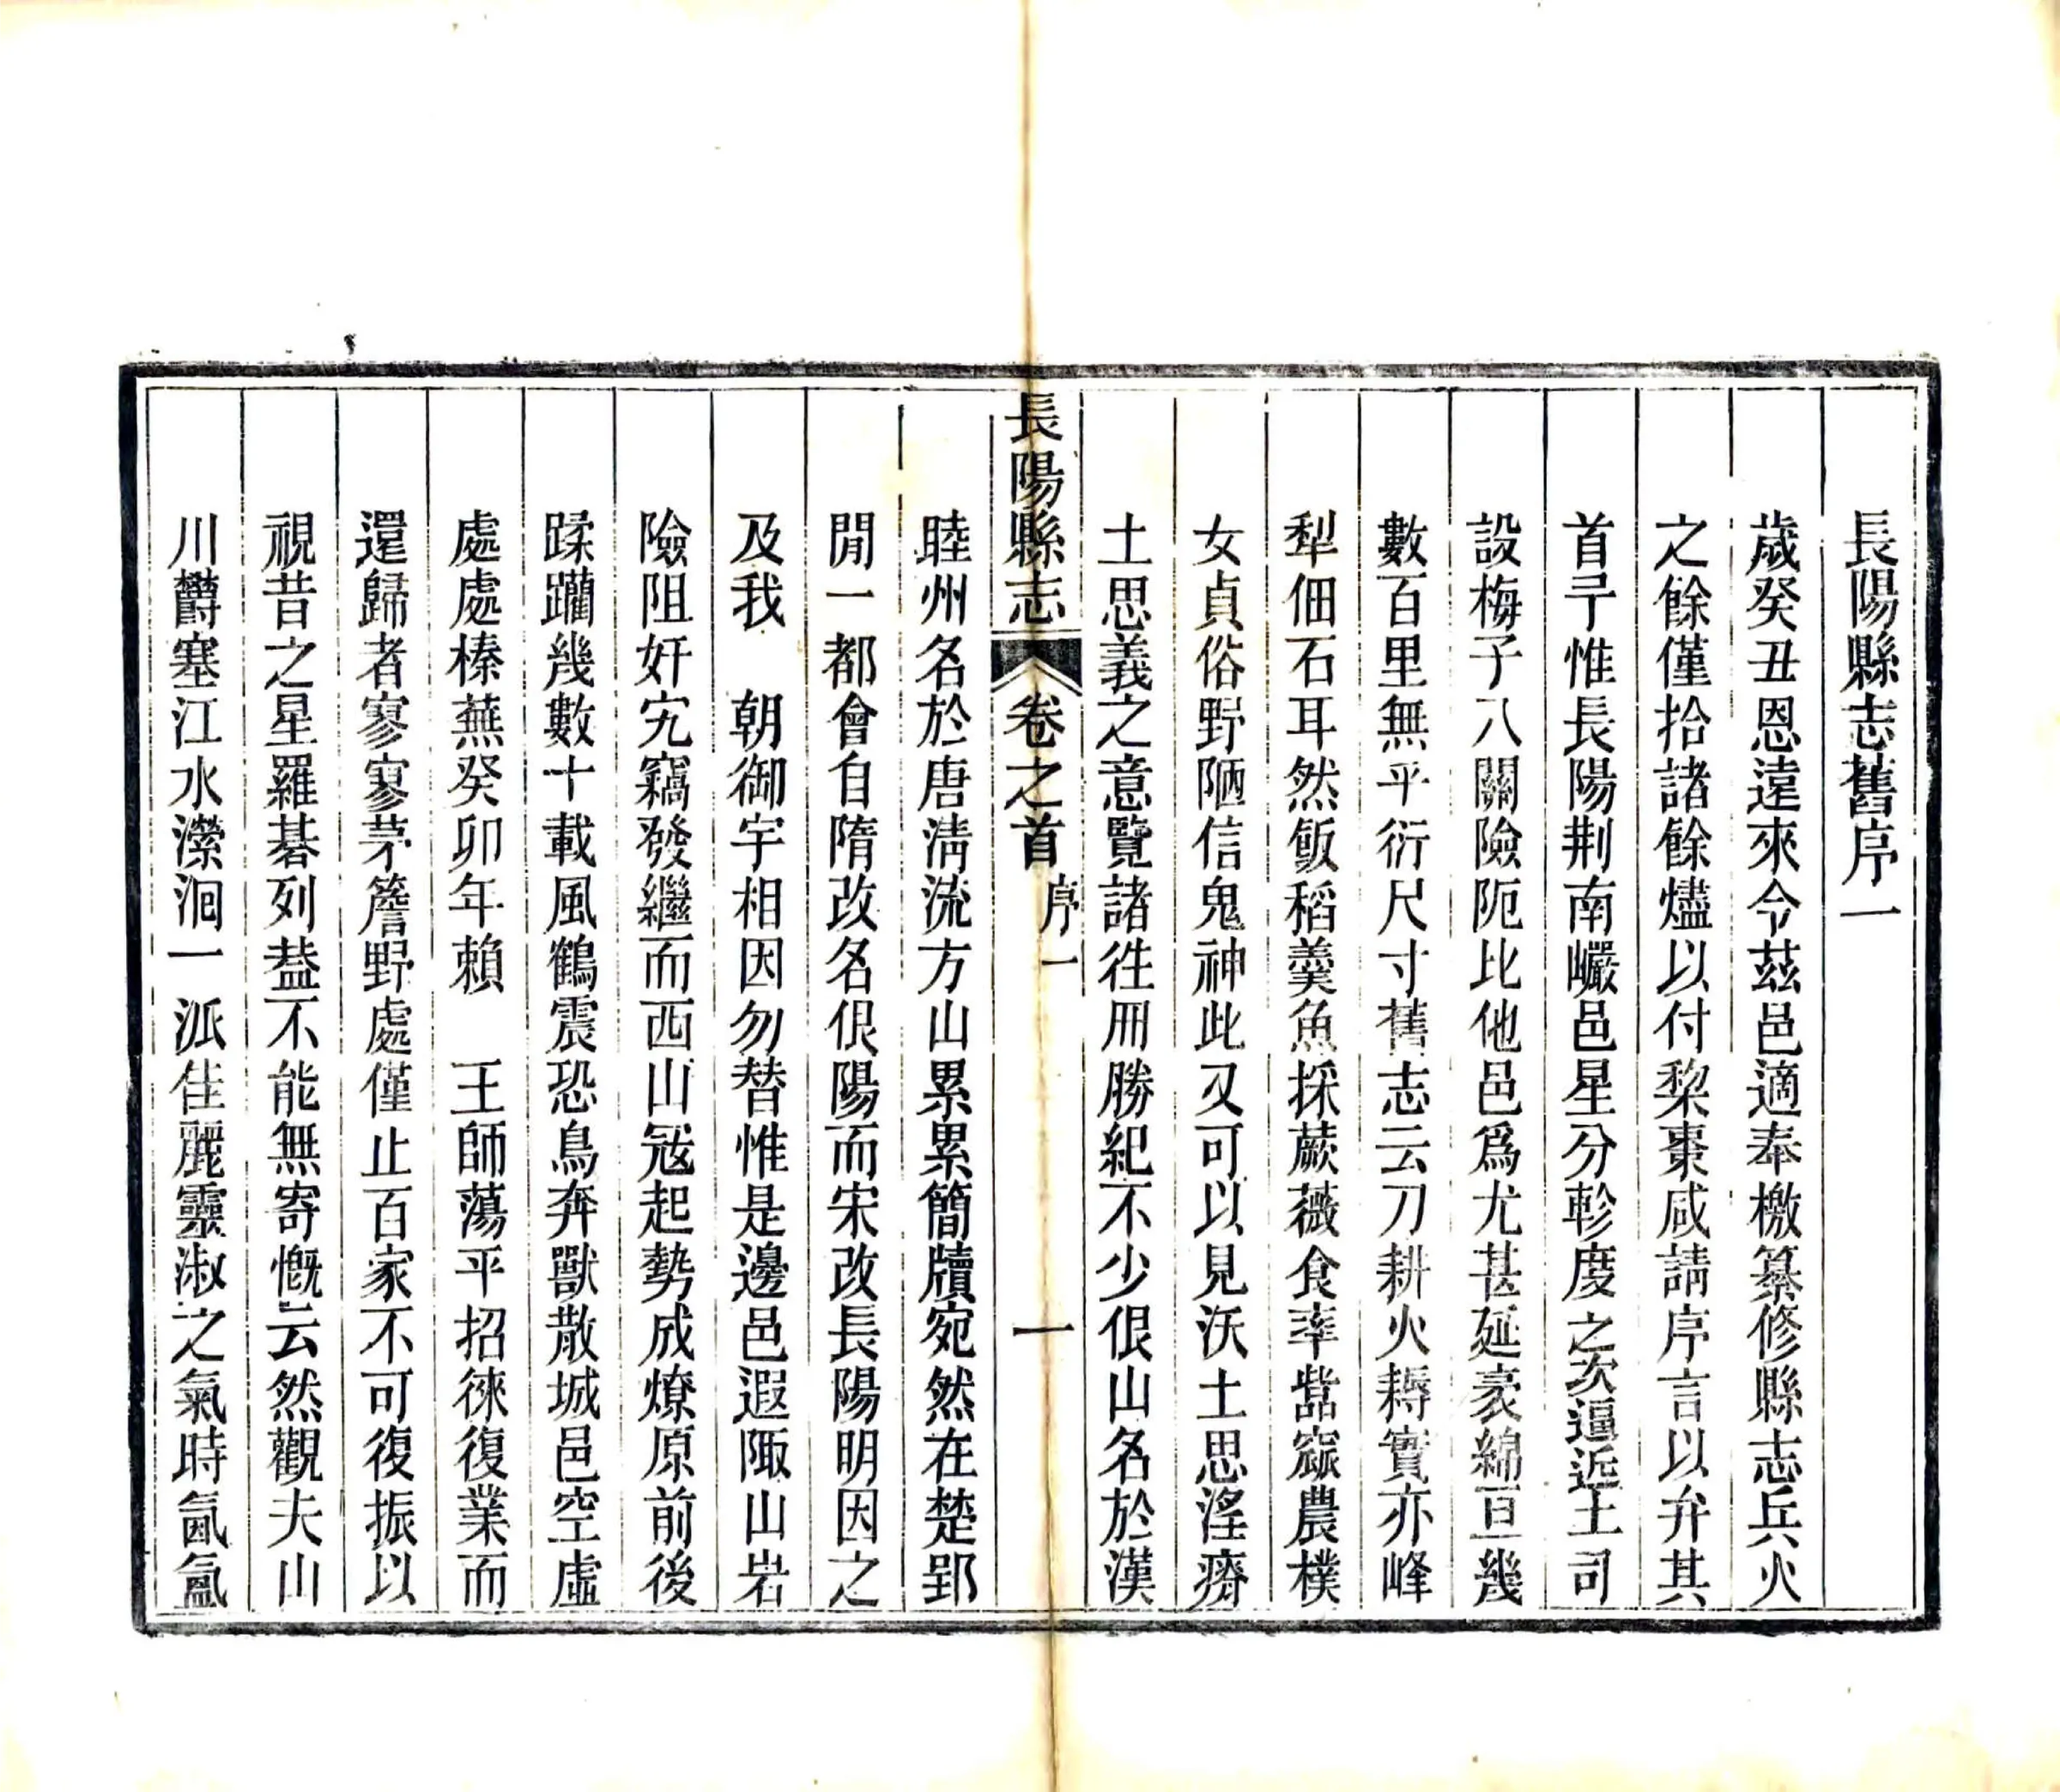 長陽縣志舊序一
歲癸丑恩遠來令茲邑適奉檄纂修縣志兵火
之餘僅拾諸餘燼以付棃棗咸請序言以弁其
首予惟長陽荆南巗邑星分軫度之次逼近土司
設梅子八關險阨比他邑爲尤甚延袤綿亘幾
數百里無平衍尺寸舊志云刀耕火耨實亦峰
犁佃石耳然飯稻羹魚採蕨薇食率啙窳農樸
女貞俗野陋信鬼神此又可以見沃土思淫瘠
土思義之意覽諸徃冊勝紀不少佷山名於漢
長陽縣志 卷之首 序一 一
睦州名於唐淸流方山累累簡牘宛然在楚郢
閒一都會自隋改名佷陽而宋改長陽明因之
及我 朝御宇相因勿替惟是邊邑遐陬山岩
險阻奸宄竊發繼而西山冦起勢成燎原前後
蹂躪幾數十載風鶴震恐鳥奔獸散城邑空虛
處處榛蕪癸卯年賴 王師蕩平招徠復業而
還歸者寥寥茅簷野處僅止百家不可復振以
視昔之星羅碁列葢不能無寄慨云然觀夫山
川欝塞江水瀠洄一派佳麗靈淑之氣時氤氳